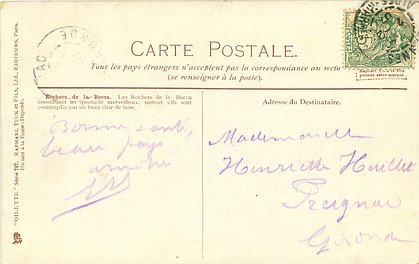 CARTE POSTALE.
Tous les pays étrangers n'acceptent pas la correspondance au recto
(se renseigner à la poste).
Rochers de la Bocca. Les Rochers de la Bocca
constituent un spectacle merveilleux, surtout s'ils sont
contemplés par un beau clair de lune.
Bonne santé,
beau pays
amitié
Adresse du Destinataire.
Mademoiselle
Henriette Huillet
Preignac
Gironde
"OILETTE" Série RAPHAEL TUCK & FILS, LTD., EDITEURS, Paris.
Un mot à la Poste (Déposé).